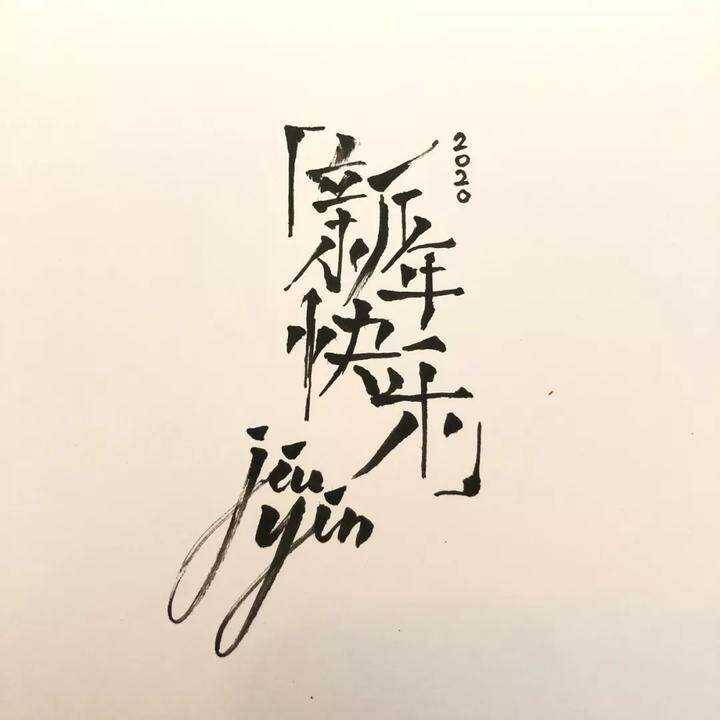 2020
「新年
快乐」
jiu
yin